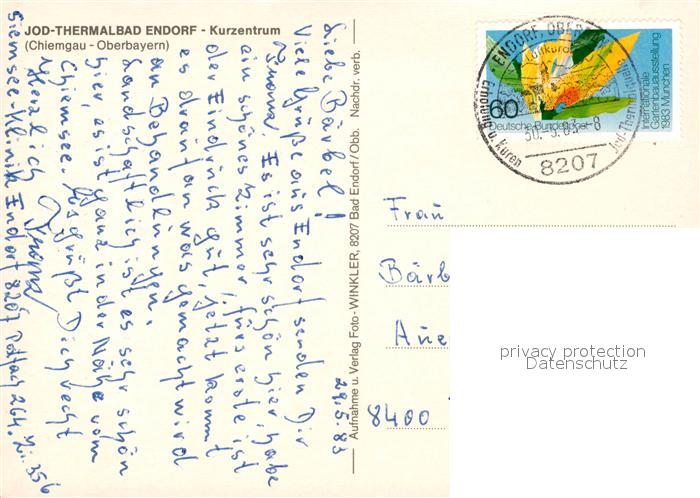 JOD-THERMALBAD ENDORF - Kurzentrum
(Chiemgau - Oberbayern)
29.5.83
Liebe Bärbel!
Viele Grüße aus Endorf senden Dir
Es ist sehr schön hier, habe
ein schönes Zimmer fürs erste ist
der Eindruck gut, jetzt kommt
es drauf an was gemacht wird
an Behandlungen.
Landschaftlich ist es sehr schön
hier, es ist ganz in der Nähe vom
Chiemsee. Es grüßt Dich recht
Herzlich
Simssee Klinik Endorf 8207 Postfach 264. Zi. 356
Aufnahme u. Verlag Foto - WINKLER, 8207 Bad Endorf/Obb. Nachdr. verb.
ENDORF, OBERBAY
8207
Erholung u. Kuren
Jod-Thermalquelle
60
Deutsche Bundespost
Internationale
Gartenbauausstellung
1983 München
Frau
Bärb
Aue
8400
privacy protection
Datenschutz